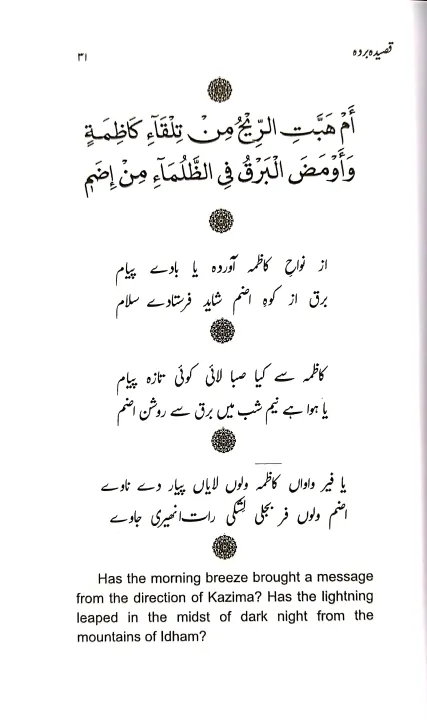 ۳۱
قصیدہ بردہ
أَمْ هَبَّتِ الرِّيْحُ مِنْ تِلْقَآءِ كَاظِمَةٍ
وَأَوْمَضَ الْبَرْقُ فِي الظَّلْمَآءِ مِنْ إِضَمِ
از نواحِ کاظمہ آوردہ یا بادے پیام
برق از کوہِ اضم شاید فرستادے سلام
کاظمہ سے کیا صبا لائی کوئی تازہ پیام
یا ہوا ہے نیم شب میں برق سے روشن اضم
یا فیر واواں کاظمہ ولوں لایاں پیار دے ناوے
اضم ولوں فر بجلی لشکی رات انھیری جاوے
Has the morning breeze brought a message
from the direction of Kazima? Has the lightning
leaped in the midst of dark night from the
mountains of Idham?